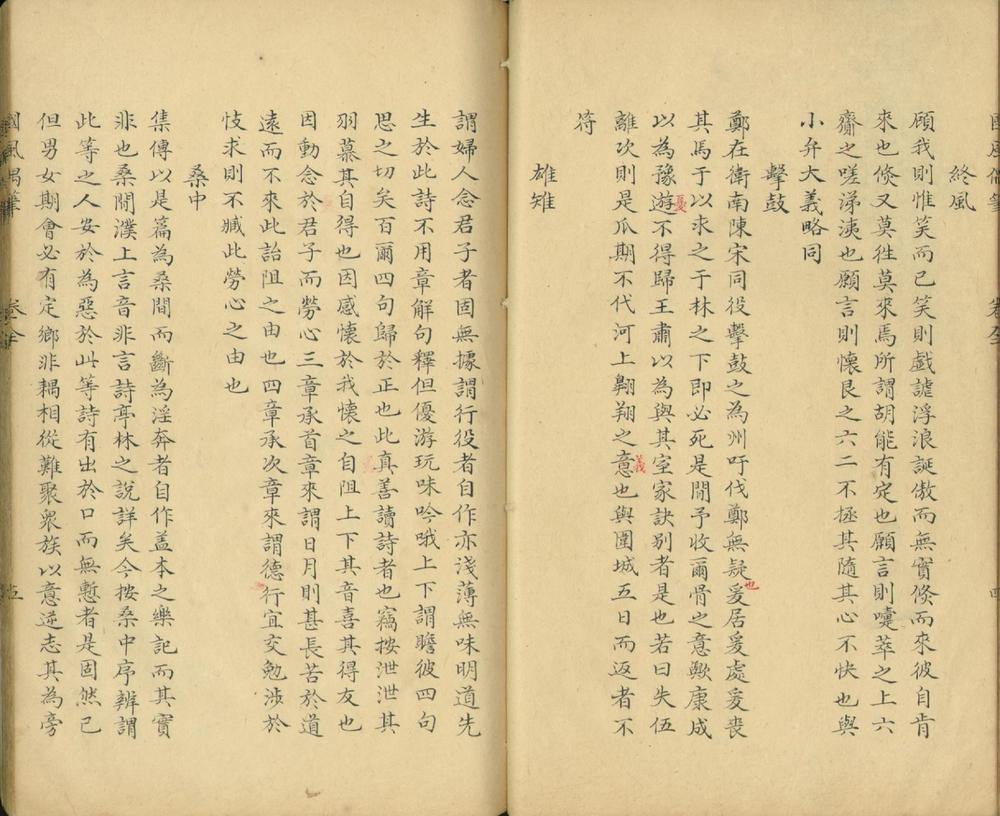 終風
顧我則惟笑而已笑則戲謔浮浪誕傲而無實倏而來彼自肯
來也倏又莫徃莫來焉所謂胡能有定也願言則嚏萃之上六
齎之嗟涕洟也願言則懷艮之六二不拯其隨其心不快也與
小弁大義略同
擊鼓
鄭在衛南陳宋同役擊鼓之為州吁伐鄭無疑也爰居爰處爰喪
其馬于以求之于林之下即必死是閒予收爾骨之意歟康成
以為豫遊不得歸王肅以為與其室家訣別者是也若曰失伍
離次則是瓜期不代河上翱翔之意也與圍城五日而返者不
符
雄雉
謂婦人念君子者固無據謂行役者自作亦淺薄無味明道先
生於此詩不用章解句釋但優游玩味吟哦上下謂瞻彼四句
思之切矣百爾四句歸於正也此真善讀詩者也竊按泄泄其
羽慕其自得也因感懷於我懷之自阻上下其音喜其得友也
因動念於君子而勞心三章承首章來謂日月則甚長苦於道
遠而不來此詒阻之由也四章承次章來謂德行宜交勉涉於
忮求則不臧此勞心之由也
桑中
集傳以是篇為桑間而斷為淫奔者自作盖本之樂記而其實
非也桑閒濮上言音非言詩亭林之說詳矣今按桑中序辨謂
此等之人安於為惡於此等詩有出於口而無慙者是固然已
但男女期會必有定鄉非耦相從難聚衆族以意逆志其為旁